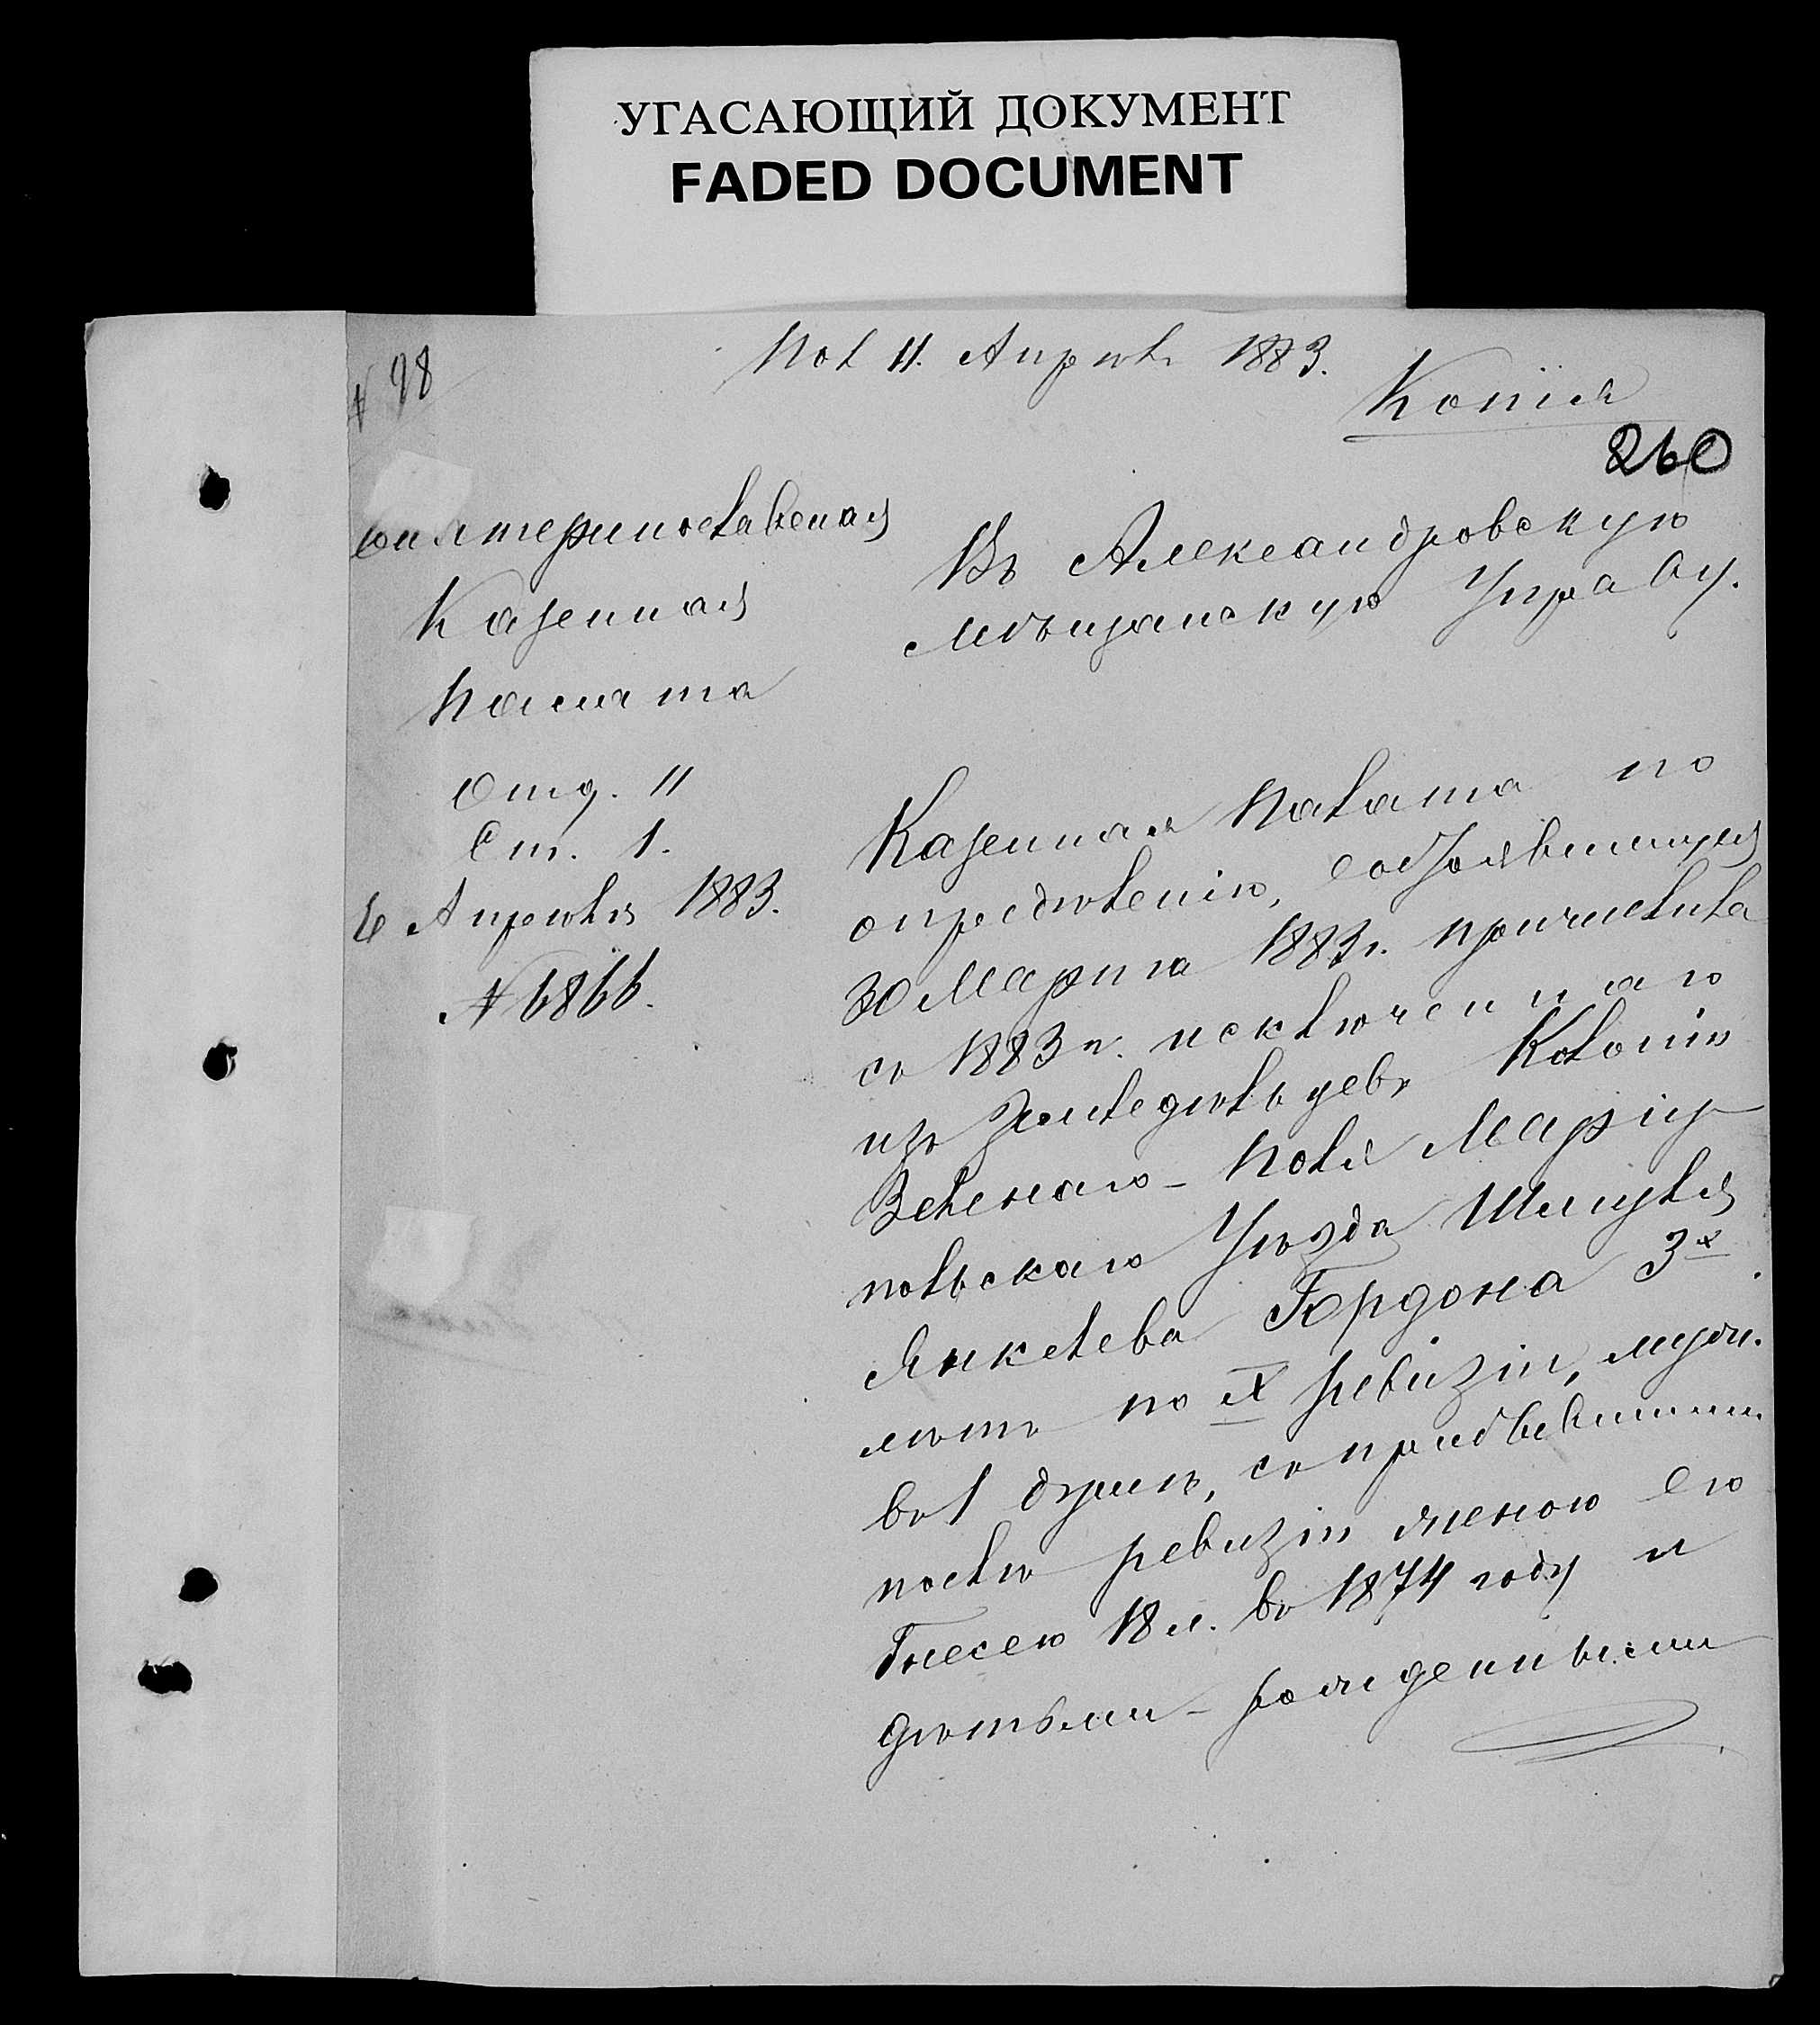 УГАСАЮЩИЙ ДОКУМЕНТ
FADED DOCUMENT
Пол 11. Апрѣл 1883.
№ 98
Копія
260
Екатеринославская
Казенная
Палата
Отд. II
Ст. 1.
6 Апрѣля 1883.
№ 6866.
Въ Александровскую
Мѣщанскую Управу.
Казенная Палата по
опредѣленію, состоявшемуся
30 Марта 1883 г. причислила
съ 1883 г. исключеннаго
изъ Земледѣльцевъ Колоніи
Зеленаго-Поля Маріу-
польскаго Уѣзда Шмуля
Янкелева Гордона 3х
лѣтъ по IX ревизіи, муж.
въ 1 душѣ, съ прибывшими
послѣ ревизіи женою его
Гнесею 18 л. въ 1874 году и
дѣтьми-рожденными